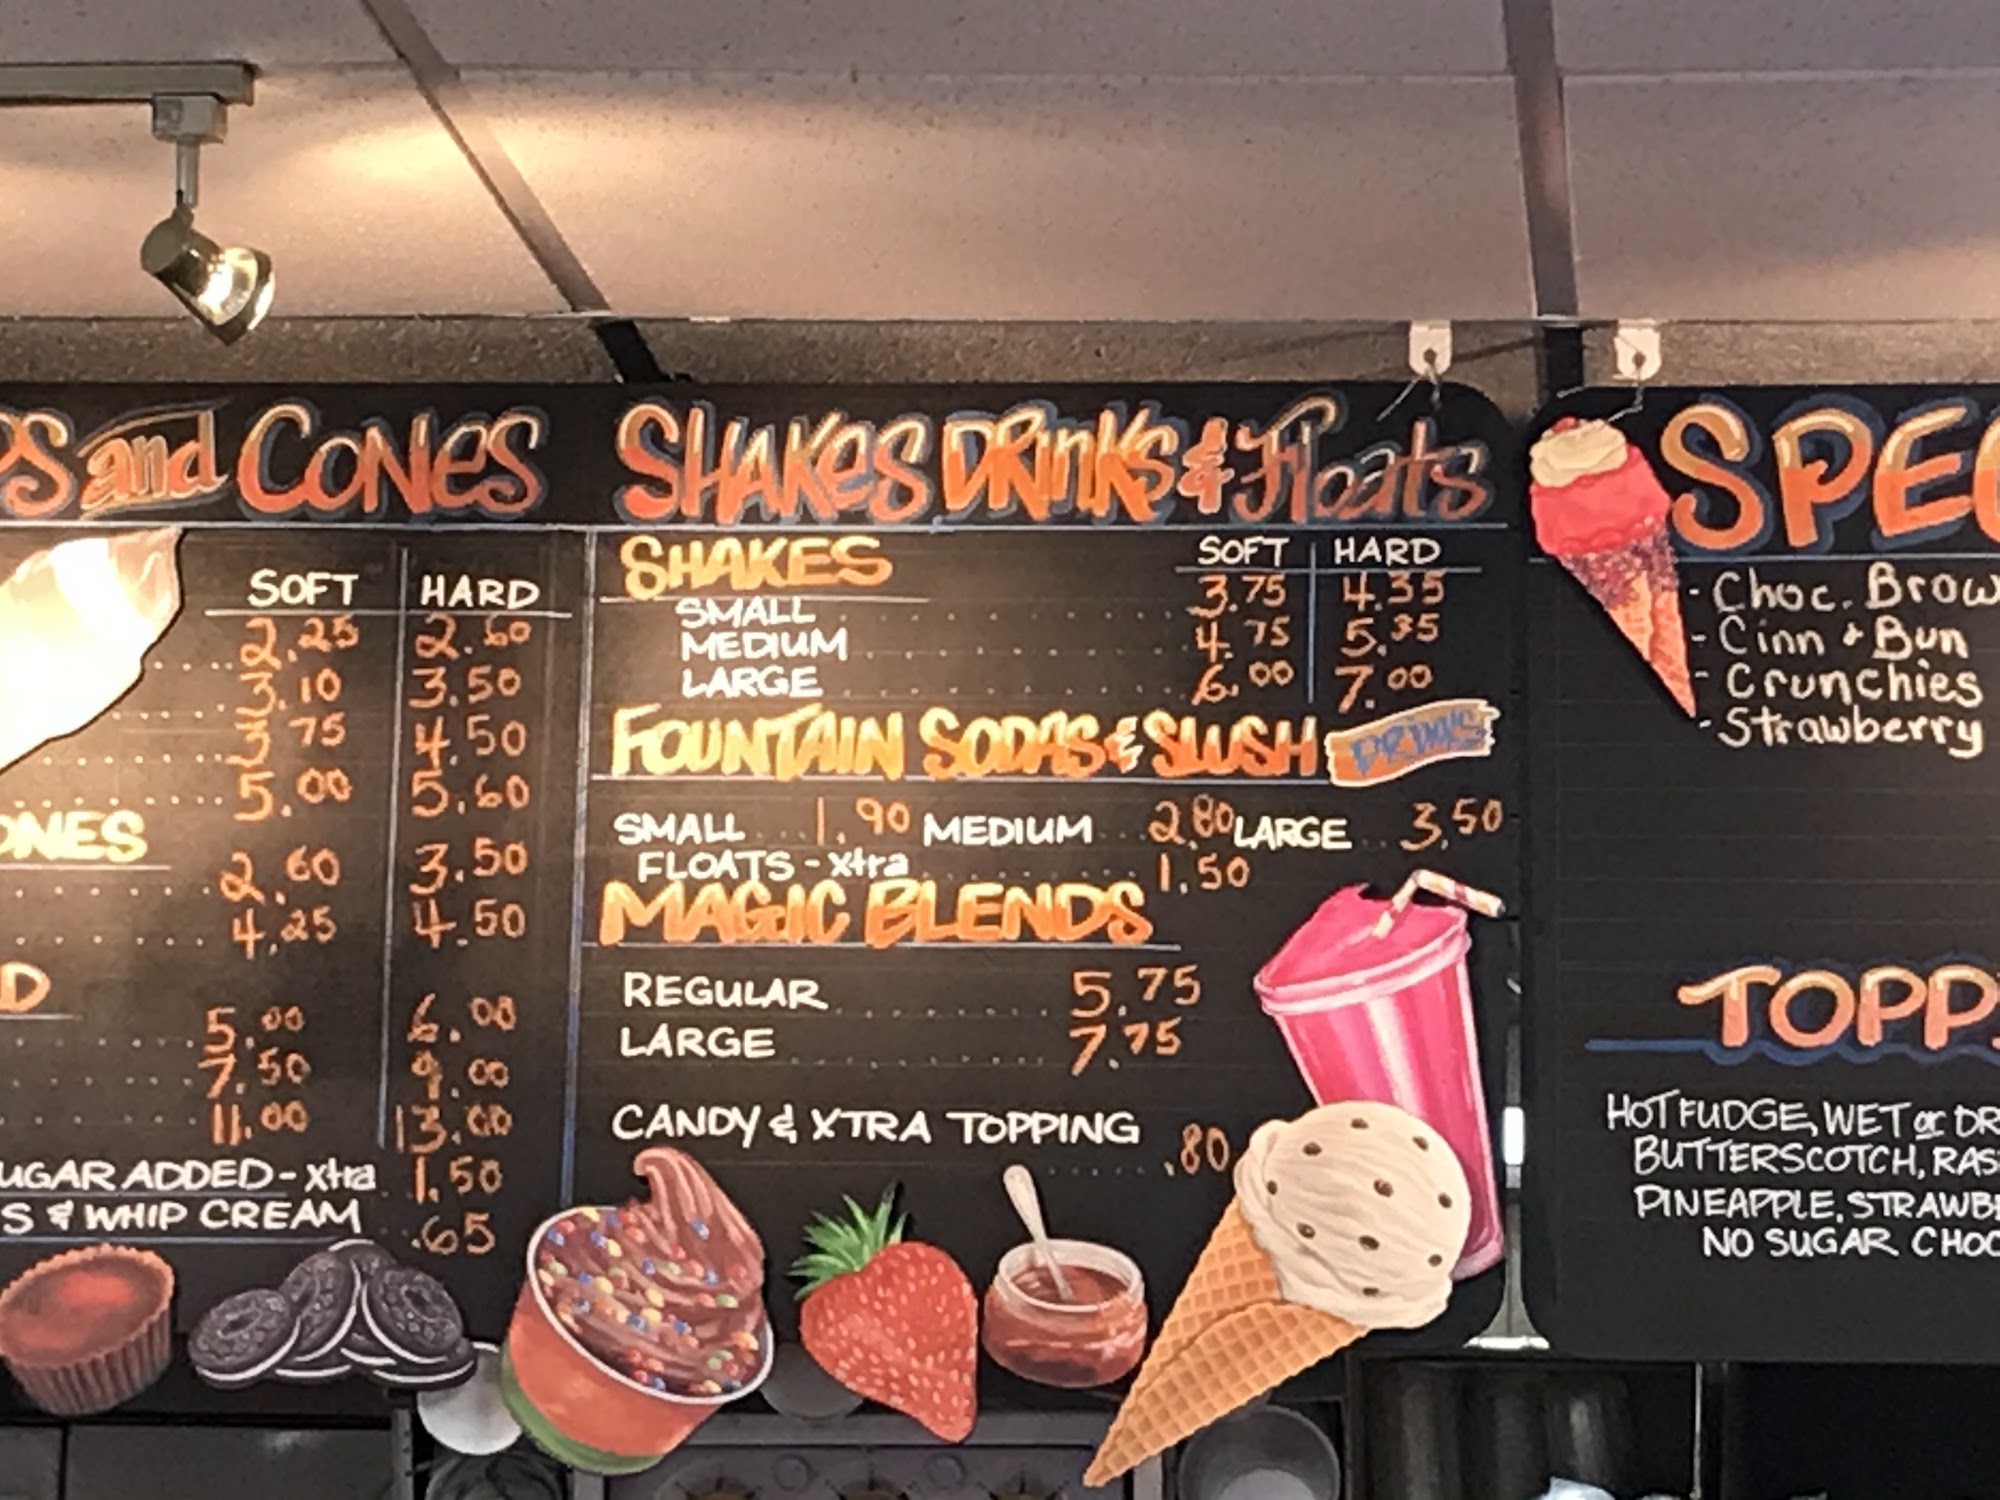 and CONES
SOFT HARD
2.25 2.60
3.10 3.50
3.75 4.50
5.00 5.60
2.60 3.50
4.25 4.50
5.00 6.00
7.50 9.00
11.00 13.00
ADDED - xtra 1.50
& WHIP CREAM .65
SHAKES DRINKS & Floats
SHAKES SOFT HARD
SMALL 3.75 4.35
MEDIUM 4.75 5.35
LARGE 6.00 7.00
FOUNTAIN SODAS & SLUSH DRINKS
SMALL 1.90 MEDIUM 2.80 LARGE 3.50
FLOATS - xtra 1.50
MAGIC BLENDS
REGULAR 5.75
LARGE 7.75
CANDY & XTRA TOPPING .80
SPEC
- Choc. Brow
- Cinn & Bun
- Crunchies
- Strawberry
TOPP
HOT FUDGE, WET or DR
BUTTERSCOTCH, RAS
PINEAPPLE, STRAWB
NO SUGAR CHOC